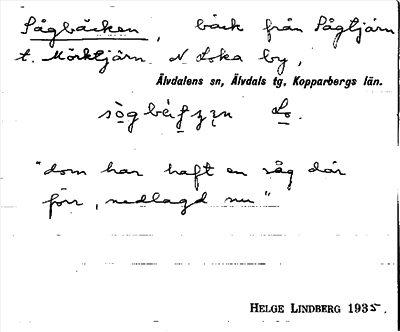 Sågbäcken, bäck från Sågtjärn
t. Mörktjärn. N Loka by,
Älvdalens sn, Älvdals tg, Kopparbergs län.
Lo.
"dom har haft en såg där
förr, nedlagd nu"
HELGE LINDBERG 1935.